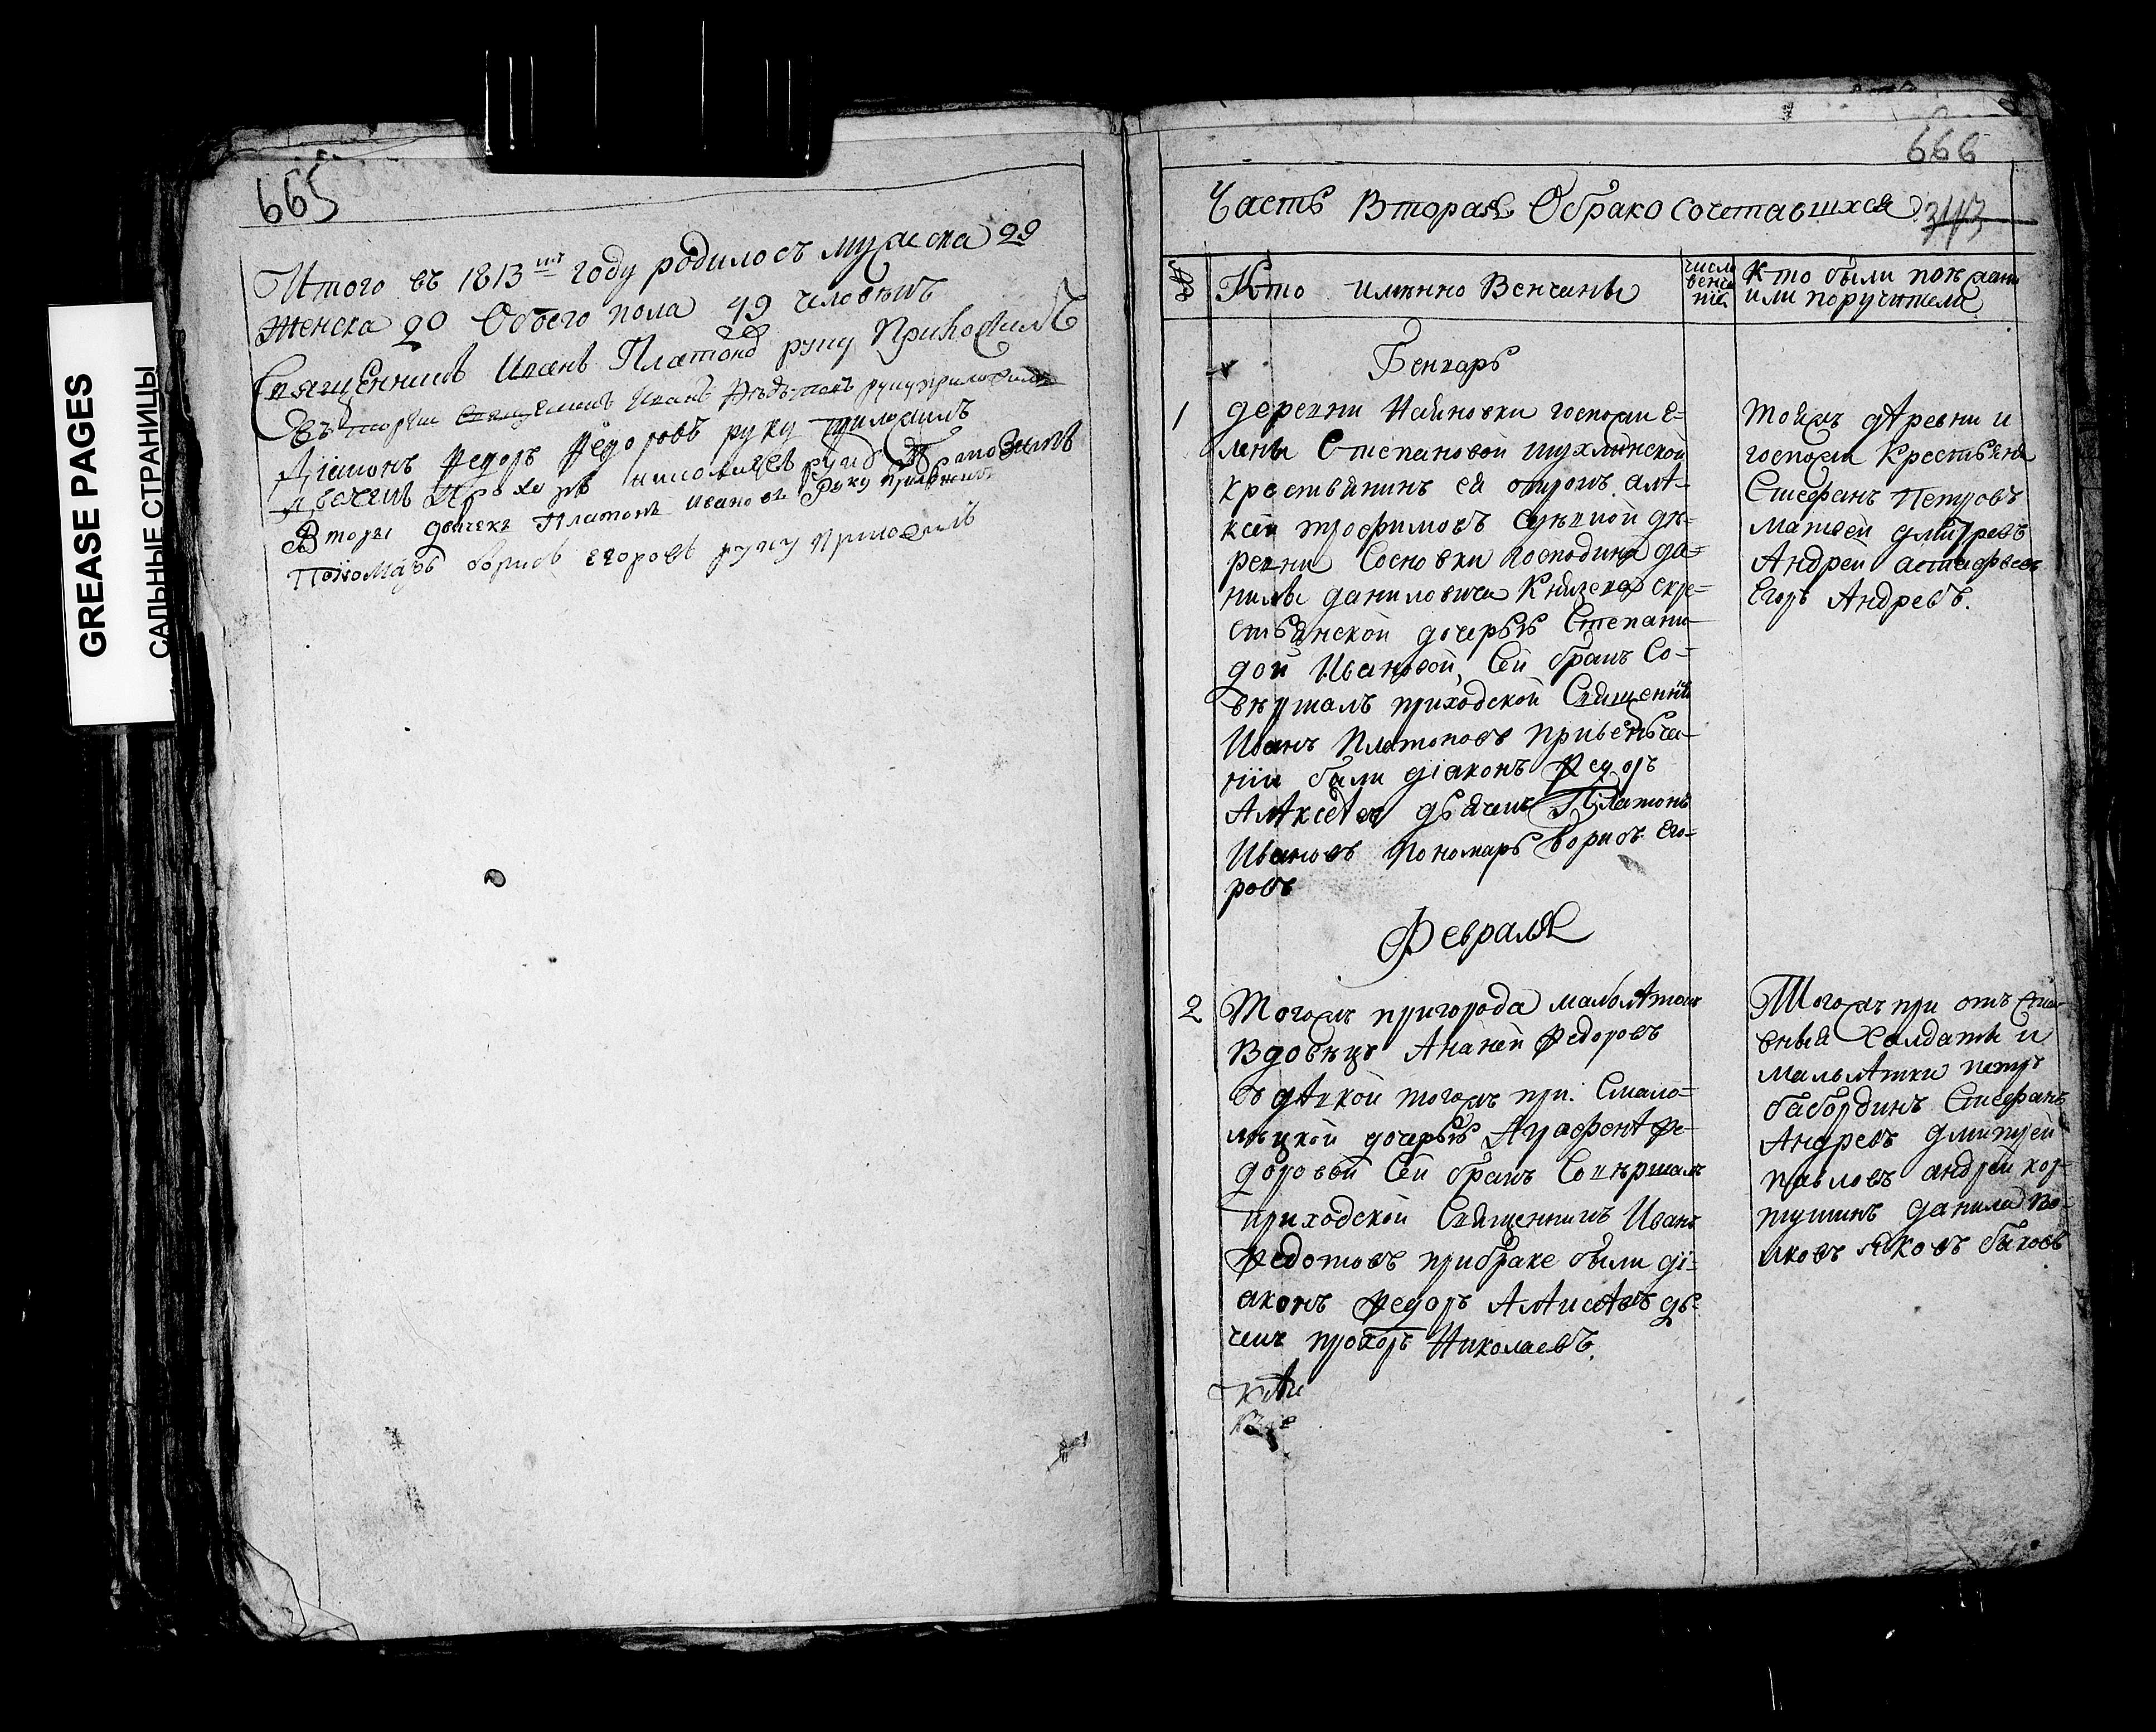 GREASE PAGES
САЛЬНЫЕ СТРАНИЦЫ
665
Итого въ 1813мъ году родилось мужеска 29
женска 20 Обоего пола 49 человекъ
Священникъ Иванъ Платоновъ руку Приложилъ
Священникъ Иванъ Федотовъ руку приложилъ
Діаконъ Федоръ руку приложилъ
Дьячекъ Прохоръ
Вторы дьячекъ Платонъ Ивановъ Руку приложилъ
Пономарь борисъ егоровъ руку приложилъ
666
Часть Вторая О брако сочетавшхся 343
№
Кто имянно Венчаны
число венчанія
Кто были поезжаня или поручители
Генварь
1
деревни Наиновки госпожи Е-
лены Степановой шухминской
крестьянинъ ея отрокъ алѣ-
ксей трофимовъ де-
ревни Сосновки господина да-
нилы даниловича кре-
стьянской дочерью Степани-
дой Ивановой, Сей бракъ Со-
вершалъ приходской Священникъ
Иванъ Платоновъ привеньча-
ніи были діаконъ Федоръ
Алѣксѣев дьячекъ Платонъ
Ивановъ Пономарь борисъ Его-
ровъ
тойжъ дѣревни и
госпожи Крестьяня
Стефанъ Петровъ
Матвей дмитревъ
Андреи астафьевъ
Егоръ Андревъ.
Февраля
2
Тогожъ пригорода малолѣтокъ
Вдовецъ Ананей Федоровъ
з дѣвкой тогожъ при: Смало-
лѣцкой дочерью Аграфенѣ Фе-
доровой Сей бракъ Совершалъ
приходской Священникъ Иванъ
Федотовъ прибраке были ді-
аконъ Федоръ Алѣксѣевъ дь-
чекъ прохоръ Николаевъ.
Тогожъ при отъ став-
еныя Салдаты и
малолѣтки петръ
бабординъ Стефанъ
Андревъ дмитреи
павловъ андреи кор-
тушинъ данила Во-
лковъ яковъ быковъ